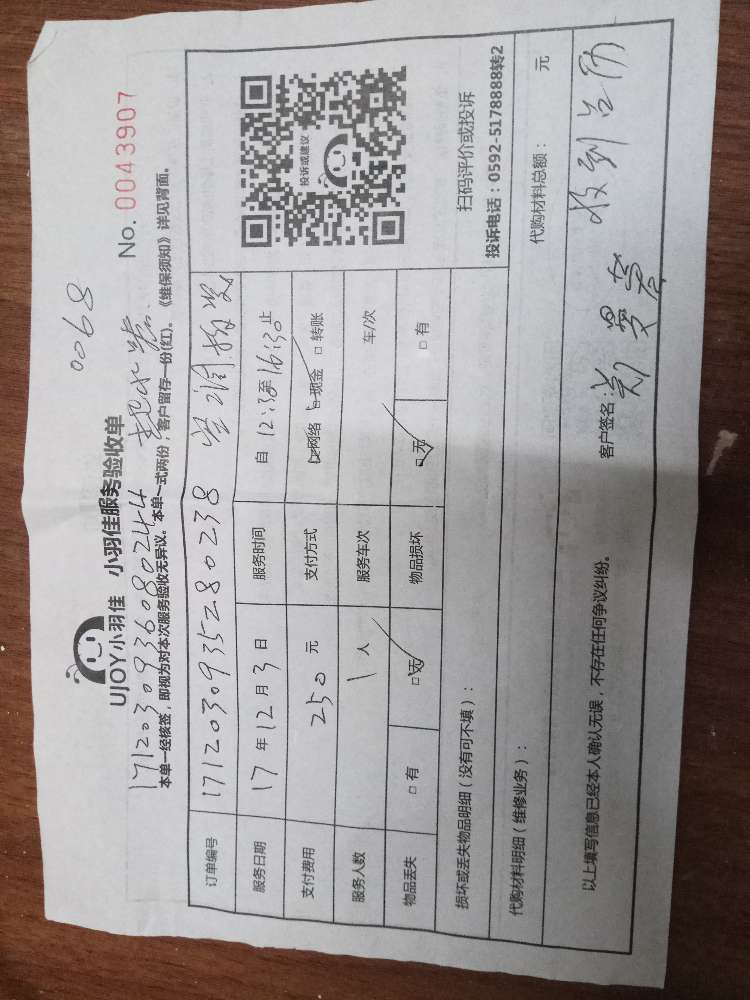 0068
UJOY小羽佳 小羽佳服务验收单
No. 0043907
1712030936080244
本单一经核签，即视为对本次服务验收无异议。本单一式两份，客户留存一份(红)。《维保须知》详见背面。
订单编号 1712030935280238
服务日期 17 年 12 月 3 日 服务时间 自 12:30 至 16:30 止
支付费用 250 元 支付方式 □网络 □现金 □转账
服务人数 1 人 服务车次 车/次
物品丢失 □有 □无 物品损坏 □无 □有
投诉或建议
扫码评价或投诉
损坏或丢失物品明细（没有可不填）：
投诉电话：0592-5178888转2
代购材料明细（维修业务）： 代购材料总额： 元
以上填写信息已经本人确认无误，不存在任何争议纠纷。 客户签名：